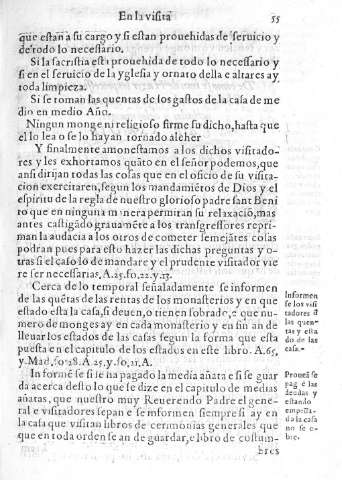 En la visita 55
que estan a su cargo y si estan prouehidas de seruicio y
de todo lo necessario.
Si la sacristia esta prouehida de todo lo necessario y
si en el seruicio de la yglesia y ornato della e altares ay
toda limpieza.
Si se toman las quentas de los gastos de la casa de me
dio en medio Año.
Ningun monge ni religioso firme su dicho, hasta que
el lo lea o se lo hayan tornado a leher
Y finalmente amonestamos a los dichos visitado-
res y les exhortamos quãto en el señor podemos, que
ansi dirijan todas las cosas que en el oficio de su visita-
cion exercitaren, segun los mandamiẽtos de Dios y el
espiritu de la regla de nuestro glorioso padre sant Beni
to que en ninguna manera permitiran su relaxaciõ, mas
antes castigãdo grauamẽte a los transgressores repri-
man la audacia a los otros de cometer semejãtes cosas
podran pues para esto hazer las dichas preguntas y o-
tras si el caso lo de mandare y el prudente visitador vie
re ser necessarias, A. 25. fo. 22. y. 23.
Cerca de lo temporal señaladamente se informen
de las quẽtas de las rentas de los monasterios y en que
estado esta la casa, si deuen, o tienen sobrado, e que nu-
mero de monges ay en cada monasterio y en fin an de
lleuar los estados de las casas segun la forma que esta
puesta en el capitulo de los estados en este libro. A. 65,
y. Mad, fo. 28. A. 25. fo, 21, A.
Informen
se los visi
tadores d
las quen-
tas y esta
do de las
casa.
Informẽ se si se ha pagado la media añata e si se guar
da acerca desto lo que se dize en el capitulo de medias
añatas, que nuestro muy Reuerendo Padre el gene-
ral e visitadores sepan e se informen siempre si ay en
la casa que visitan libros de cerimonias generales que
que en toda orden se an de guardar, e libro de costum-
bres
Prouese se
pag e las
deudas y
estando
empeña-
da la casa
no se o-
bre.